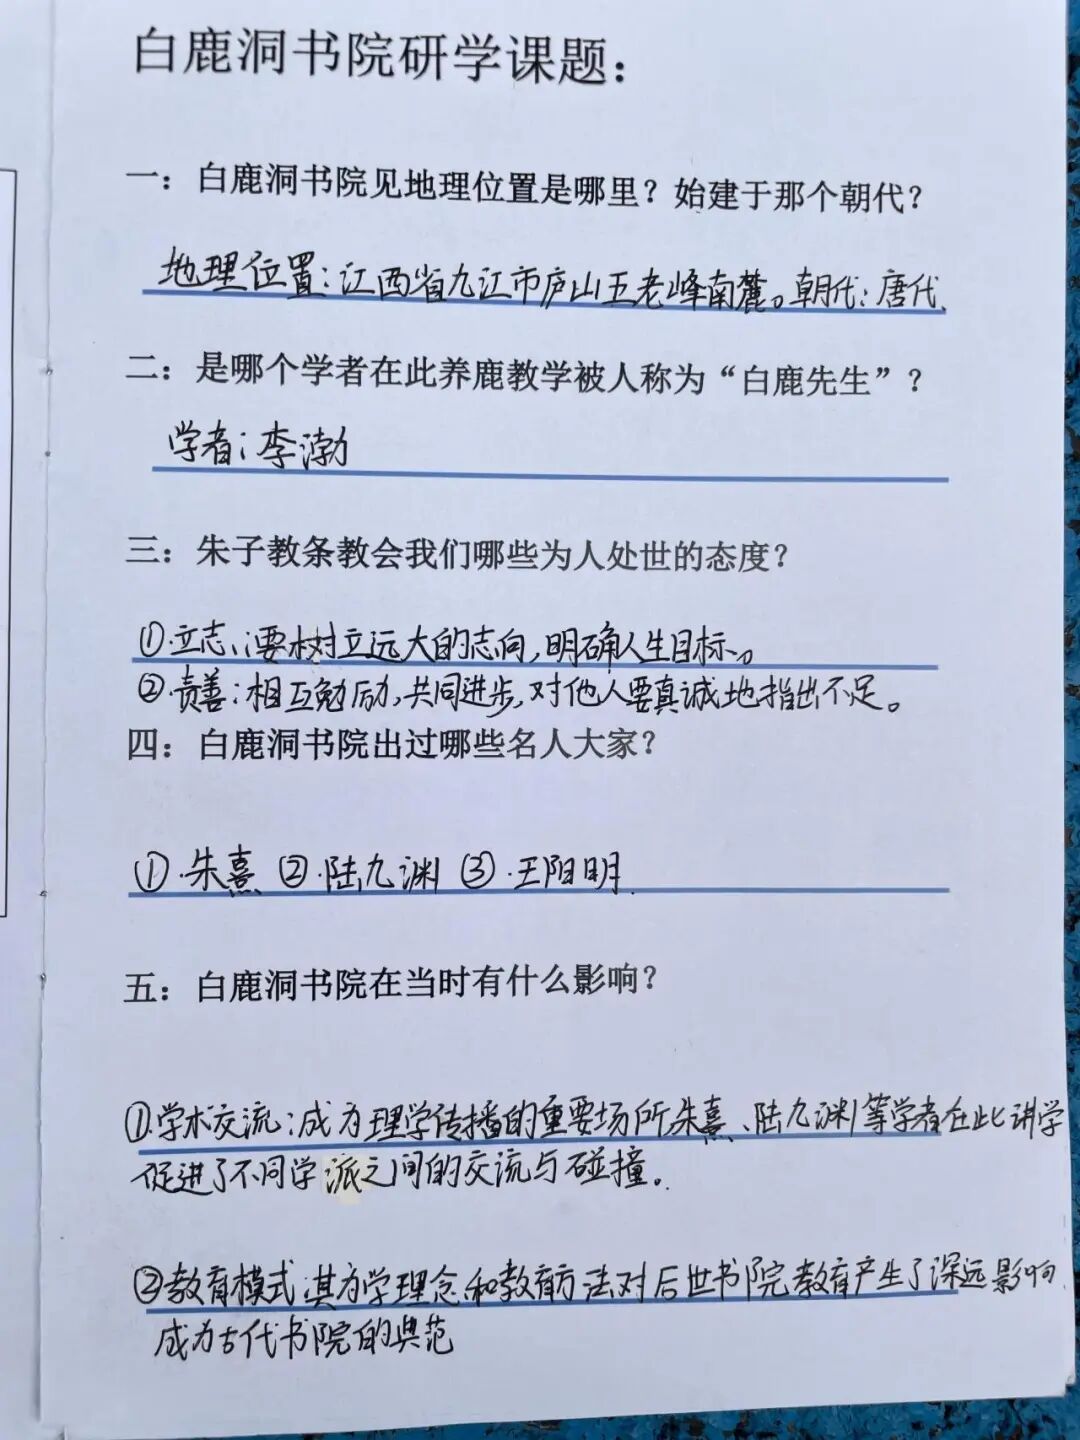 白鹿洞书院研学课题：
一：白鹿洞书院见地理位置是哪里？始建于那个朝代？
地理位置：江西省九江市庐山五老峰南麓。朝代：唐代.
二：是哪个学者在此养鹿教学被人称为“白鹿先生”？
学者：李渤
三：朱子教条教会我们哪些为人处世的态度？
①.立志：要树立远大的志向，明确人生目标。
②.责善：相互勉励，共同进步，对他人要真诚地指出不足。
四：白鹿洞书院出过哪些名人大家？
①.朱熹 ②.陆九渊 ③.王阳明.
五：白鹿洞书院在当时有什么影响？
①.学术交流：成为理学传播的重要场所朱熹、陆九渊等学者在此讲学
促进了不同学派之间的交流与碰撞。
②教育模式：其办学理念和教育方法对后世书院教育产生了深远影响.
成为古代书院的典范